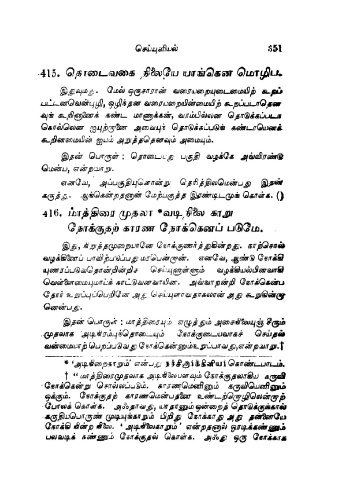 செய்யுளியல் 351
415. தொடைவகை நிலையே யாங்கென மொழிப.
இதுவுமது. மேல் ஒருசாரான் வரையறையுடைமையிற் கூறப்
பட்டனவென்புழி, ஒழிந்தன வரையறையின்மையிற் கூறப்படாதென
வுங் கூறினானைக் கண்ட மாணாக்கன், வாய்பில்லன தொடுக்கப்படா
கொல்லென ஐயுற்றானை அவையுந் தொடுக்கப்படுங் கண்டாயெனக்
கூறினமையின் ஐயம் அறுத்ததெனவும் அமையும்.
இதன் பொருள் : தொடையது பகுதி வழக்கே அவ்விரண்டு
மென்ப, என்றவாறு.
எனவே, அப்பகுதியுளொன்று தெரிந்திலமென்பது இதன்
கருத்து. ஆங்கென்றதனான் மேற்பகுத்த இரண்டிடமுங் கொள்க. ()
416. மாத்திரை முதலா *வடிநிலை காறு
நோக்குதற் காரண நோக்கெனப் படுமே.
இது, நிறுத்தமுறையானே நோக்குணர்த்துகின்றது. காற்சொல்
வழக்கினைப் பாவிற்படுப்பது மரபென்றான். எனவே, ஆண்டு நோக்கி
யுணரப்படுவதொன்றின்றிச் செய்யுளுள்ளும் வழக்கியல்பினவாகி
வெள்ளைமையுமாய்க் காட்டுவனவாயின. அங்ஙனமன்றி நோக்கென்ப
தோர் உறுப்புப்பெறினே அது செய்யுளாவதாகலான் அது கூறுகின்றா
னென்பது.
இதன் பொருள் : மாத்திரையும் எழுத்தும் அசைநிலையுஞ் சீரும்
முதலாக அடிநிரம்புந்துணையும் நோக்குடையவாகச் செய்தல்
வன்மையாற்பெறப்படுவது நோக்கென்னும் உறுப்பாவது, என்றவாறு.†
* 'அடிநிலைகாறும்' என்பது நச்சினார்க்கினியர் கொண்டபாடம்.
† "மாத்திரைமுதலாக அடிநிலையளவும் நோக்குதலாகிய கருவி
நோக்கென்று சொல்லப்படும். காரணமெனினும் கருவியெனினும்
ஒக்கும். நோக்குதற் காரணமென்பதனை உண்டற்றொழிலென்றாற்
போலக் கொள்க. அஃதாவது, யாதானும் ஒன்றைத் தொடுக்குங்கால்
கருதியபொருளை முடிக்குங்காறும் பிறிது நோக்காது அது தன்னையே
நோக்கி நின்ற நிலை. 'அடிநிலைகாறும்' என்றதனால் ஓரடிக்கண்ணும்
பலவடிக் கண்ணும் நோக்குதல் கொள்க. அஃது ஒரு நோக்காக